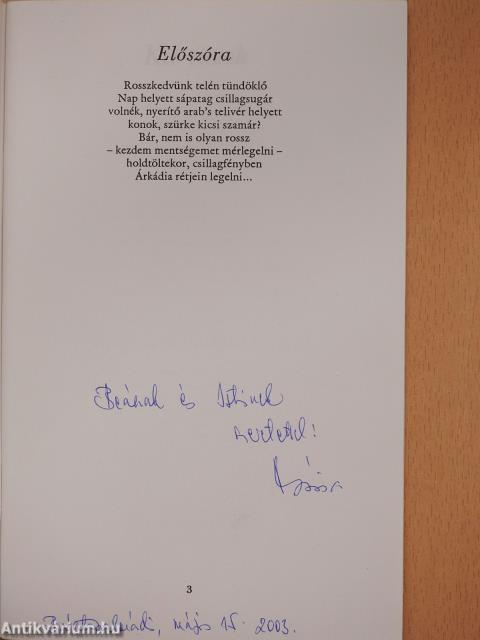 Előszóra
Rosszkedvünk telén tündöklő
Nap helyett sápatag csillagsugár
volnék, nyerítő arab's telivér helyett
konok, szürke kicsi szamár?
Bár, nem is olyan rossz
– kezdem mentségemet mérlegelni –
holdtöltekor, csillagfényben
Árkádia rétjein legelni...
Beának és
szeretettel!
3
május 15. 2003.
Antikvárium.hu